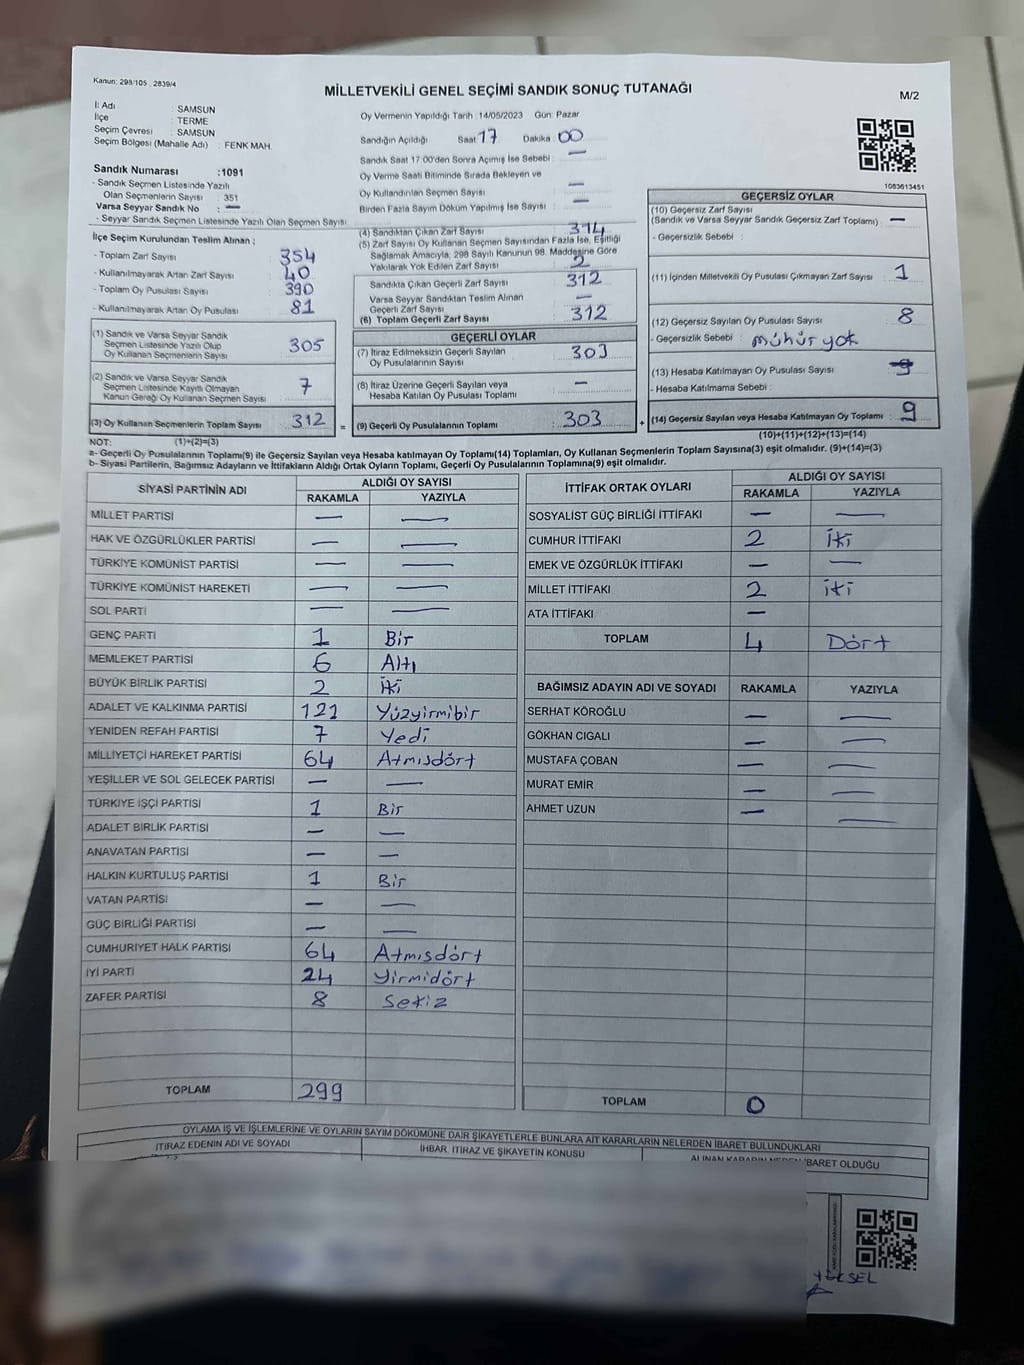 Kanun: 298/105 , 2839/4
MİLLETVEKİLİ GENEL SEÇİMİ SANDIK SONUÇ TUTANAĞI
M/2
İl Adı : SAMSUN
İlçe : TERME
Seçim Çevresi : SAMSUN
Seçim Bölgesi (Mahalle Adı) : FENK MAH.
Oy Vermenin Yapıldığı Tarih :14/05/2023 Gün: Pazar
Sandığın Açıldığı Saat 17 Dakika : 00
Sandık Saat 17:00'den Sonra Açımış İse Sebebi : —
Oy Verme Saati Bitiminde Sırada Bekleyen ve
Oy Kullandırılan Seçmen Sayısı : —
Birden Fazla Sayım Döküm Yapılmış İse Sayısı : —
1083613451
Sandık Numarası :1091
- Sandık Seçmen Listesinde Yazılı
Olan Seçmenlerin Sayısı : 351
Varsa Seyyar Sandık No : —
- Seyyar Sandık Seçmen Listesinde Yazılı Olan Seçmen Sayısı
İlçe Seçim Kurulundan Teslim Alınan ;
- Toplam Zarf Sayısı : 354
- Kullanılmayarak Artan Zarf Sayısı : 40
- Toplam Oy Pusulası Sayısı : 390
- Kullanılmayarak Artan Oy Pusulası : 81
(1) Sandık ve Varsa Seyyar Sandık
Seçmen Listesinde Yazılı Olup
Oy Kullanan Seçmenlerin Sayısı : 305
(2) Sandık ve Varsa Seyyar Sandık
Seçmen Listesinde Kayıtlı Olmayan
Kanun Gereği Oy Kullanan Seçmen Sayısı : 7
(3) Oy Kullanan Seçmenlerin Toplam Sayısı : 312
(4) Sandıktan Çıkan Zarf Sayısı : 314
(5) Zarf Sayısı Oy Kullanan Seçmen Sayısından Fazla İse, Eşitliği
Sağlamak Amacıyla, 298 Sayılı Kanunun 98. Maddesine Göre
Yakılarak Yok Edilen Zarf Sayısı : 2
Sandıkta Çıkan Geçerli Zarf Sayısı : 312
Varsa Seyyar Sandıktan Teslim Alınan
Geçerli Zarf Sayısı : —
(6) Toplam Geçerli Zarf Sayısı : 312
GEÇERLİ OYLAR
(7) İtiraz Edilmeksizin Geçerli Sayılan
Oy Pusulalarının Sayısı : 303
(8) İtiraz Üzerine Geçerli Sayılan veya
Hesaba Katılan Oy Pusulası Toplamı : —
= (9) Geçerli Oy Pusulalarının Toplamı : 303
GEÇERSİZ OYLAR
(10) Geçersiz Zarf Sayısı
(Sandık ve Varsa Seyyar Sandık Geçersiz Zarf Toplamı) : —
- Geçersizlik Sebebi :
(11) İçinden Milletvekili Oy Pusulası Çıkmayan Zarf Sayısı : 1
(12) Geçersiz Sayılan Oy Pusulası Sayısı : 8
- Geçersizlik Sebebi : mühür yok
(13) Hesaba Katılmayan Oy Pusulası Sayısı :
- Hesaba Katılmama Sebebi :
+ (14) Geçersiz Sayılan veya Hesaba Katılmayan Oy Toplamı : 9
NOT: (1)+(2)=(3)
(10)+(11)+(12)+(13)=(14)
a- Geçerli Oy Pusulalarının Toplamı(9) ile Geçersiz Sayılan veya Hesaba katılmayan Oy Toplamı(14) Toplamları, Oy Kullanan Seçmenlerin Toplam Sayısına(3) eşit olmalıdır. (9)+(14)=(3)
b- Siyasi Partilerin, Bağımsız Adayların ve İttifakların Aldığı Ortak Oyların Toplamı, Geçerli Oy Pusulalarının Toplamına(9) eşit olmalıdır.
SİYASİ PARTİNİN ADI ALDIĞI OY SAYISI
RAKAMLA YAZIYLA
MİLLET PARTİSİ — —
HAK VE ÖZGÜRLÜKLER PARTİSİ — —
TÜRKİYE KOMÜNİST PARTİSİ — —
TÜRKİYE KOMÜNİST HAREKETİ — —
SOL PARTİ — —
GENÇ PARTİ 1 Bir
MEMLEKET PARTİSİ 6 Altı
BÜYÜK BİRLİK PARTİSİ 2 İki
ADALET VE KALKINMA PARTİSİ 121 Yüzyirmibir
YENİDEN REFAH PARTİSİ 7 Yedi
MİLLİYETÇİ HAREKET PARTİSİ 64 Atmışdört
YEŞİLLER VE SOL GELECEK PARTİSİ — —
TÜRKİYE İŞÇİ PARTİSİ 1 Bir
ADALET BİRLİK PARTİSİ — —
ANAVATAN PARTİSİ — —
HALKIN KURTULUŞ PARTİSİ 1 Bir
VATAN PARTİSİ — —
GÜÇ BİRLİĞİ PARTİSİ — —
CUMHURİYET HALK PARTİSİ 64 Atmısdört
İYİ PARTİ 24 Yirmidört
ZAFER PARTİSİ 8 Sekiz
TOPLAM 299
İTTİFAK ORTAK OYLARI ALDIĞI OY SAYISI
RAKAMLA YAZIYLA
SOSYALİST GÜÇ BİRLİĞİ İTTİFAKI — —
CUMHUR İTTİFAKI 2 İki
EMEK VE ÖZGÜRLÜK İTTİFAKI — —
MİLLET İTTİFAKI 2 iki
ATA İTTİFAKI —
TOPLAM 4 Dört
BAĞIMSIZ ADAYIN ADI VE SOYADI RAKAMLA YAZIYLA
SERHAT KÖROĞLU — —
GÖKHAN CIGALI — —
MUSTAFA ÇOBAN — —
MURAT EMİR — —
AHMET UZUN — —
TOPLAM 0
OYLAMA İŞ VE İŞLEMLERİNE VE OYLARIN SAYIM DÖKÜMÜNE DAİR ŞİKAYETLERLE BUNLARA AİT KARARLARIN NELERDEN İBARET BULUNDUKLARI
İTİRAZ EDENİN ADI VE SOYADI
İHBAR, İTİRAZ VE ŞİKAYETİN KONUSU
ALINAN KARARIN NEDEN İBARET OLDUĞU